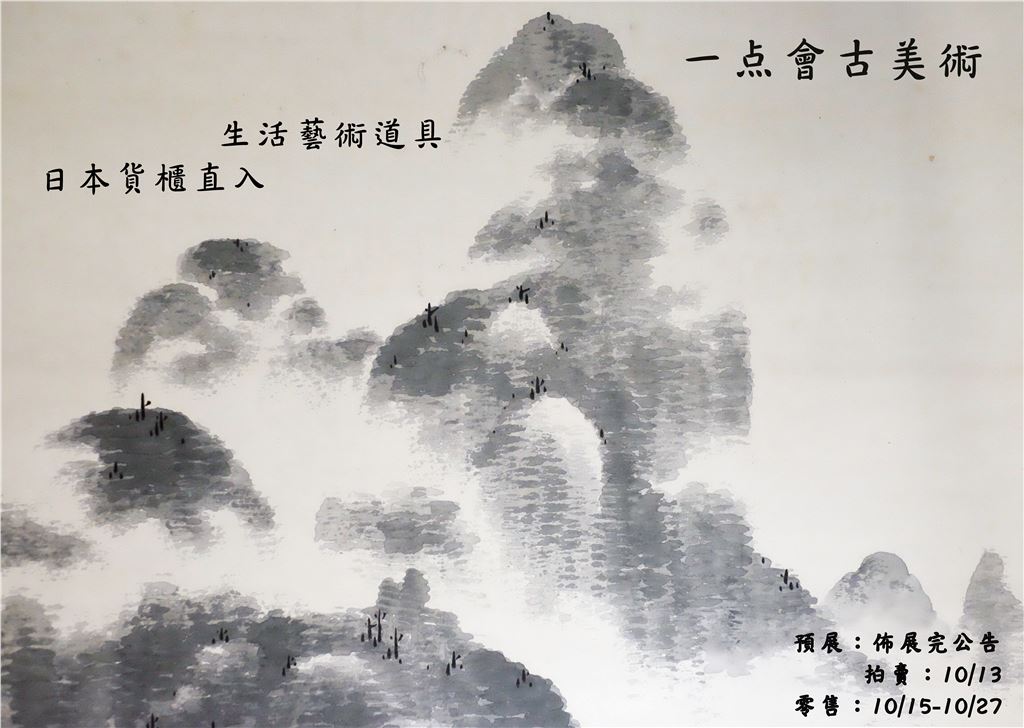 一点會古美術
生活藝術道具
日本貨櫃直入
預展：佈展完公告
拍賣：10/13
零售：10/15-10/27